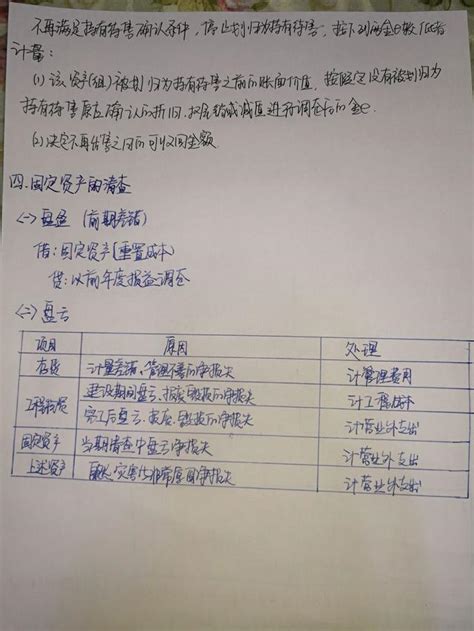 不再满足持有待售确认条件，停止划归为持有待售，按下列两金额孰低者
计量：
(1) 该资产(组)被划归为持有待售之前的账面价值，按照假定没有被划归为
持有待售原应确认的折旧、摊销或减值进行调整后的金e.
(2)决定不再出售之日的可收回金额
四.固定资产的清查
(一)盘盈 (前期差错)
借：固定资产[重置成本]
贷：以前年度损益调整
(二)盘亏
项目 原因 处理
存货 计量差错、管理不善的净损失 计管理费用
工程物资 建设期间盘亏、报废、毁损的净损失 计工程成本
完工后盘亏、报废、毁损的净损失 计营业外支出
固定资产 当期清查中盘亏净损失 计营业外支出
上述资产 自然灾害等非常原因净损失 计营业外支出